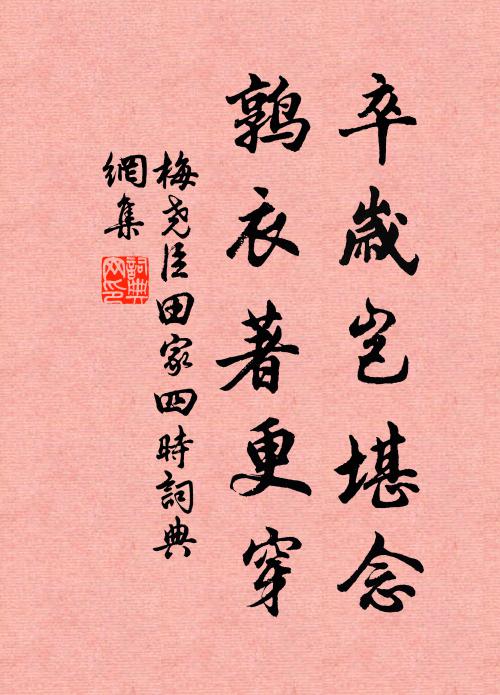 卒歲豈堪念
鹑衣著更穿
梅尧臣田家四時詞典
網集
詞典
网印